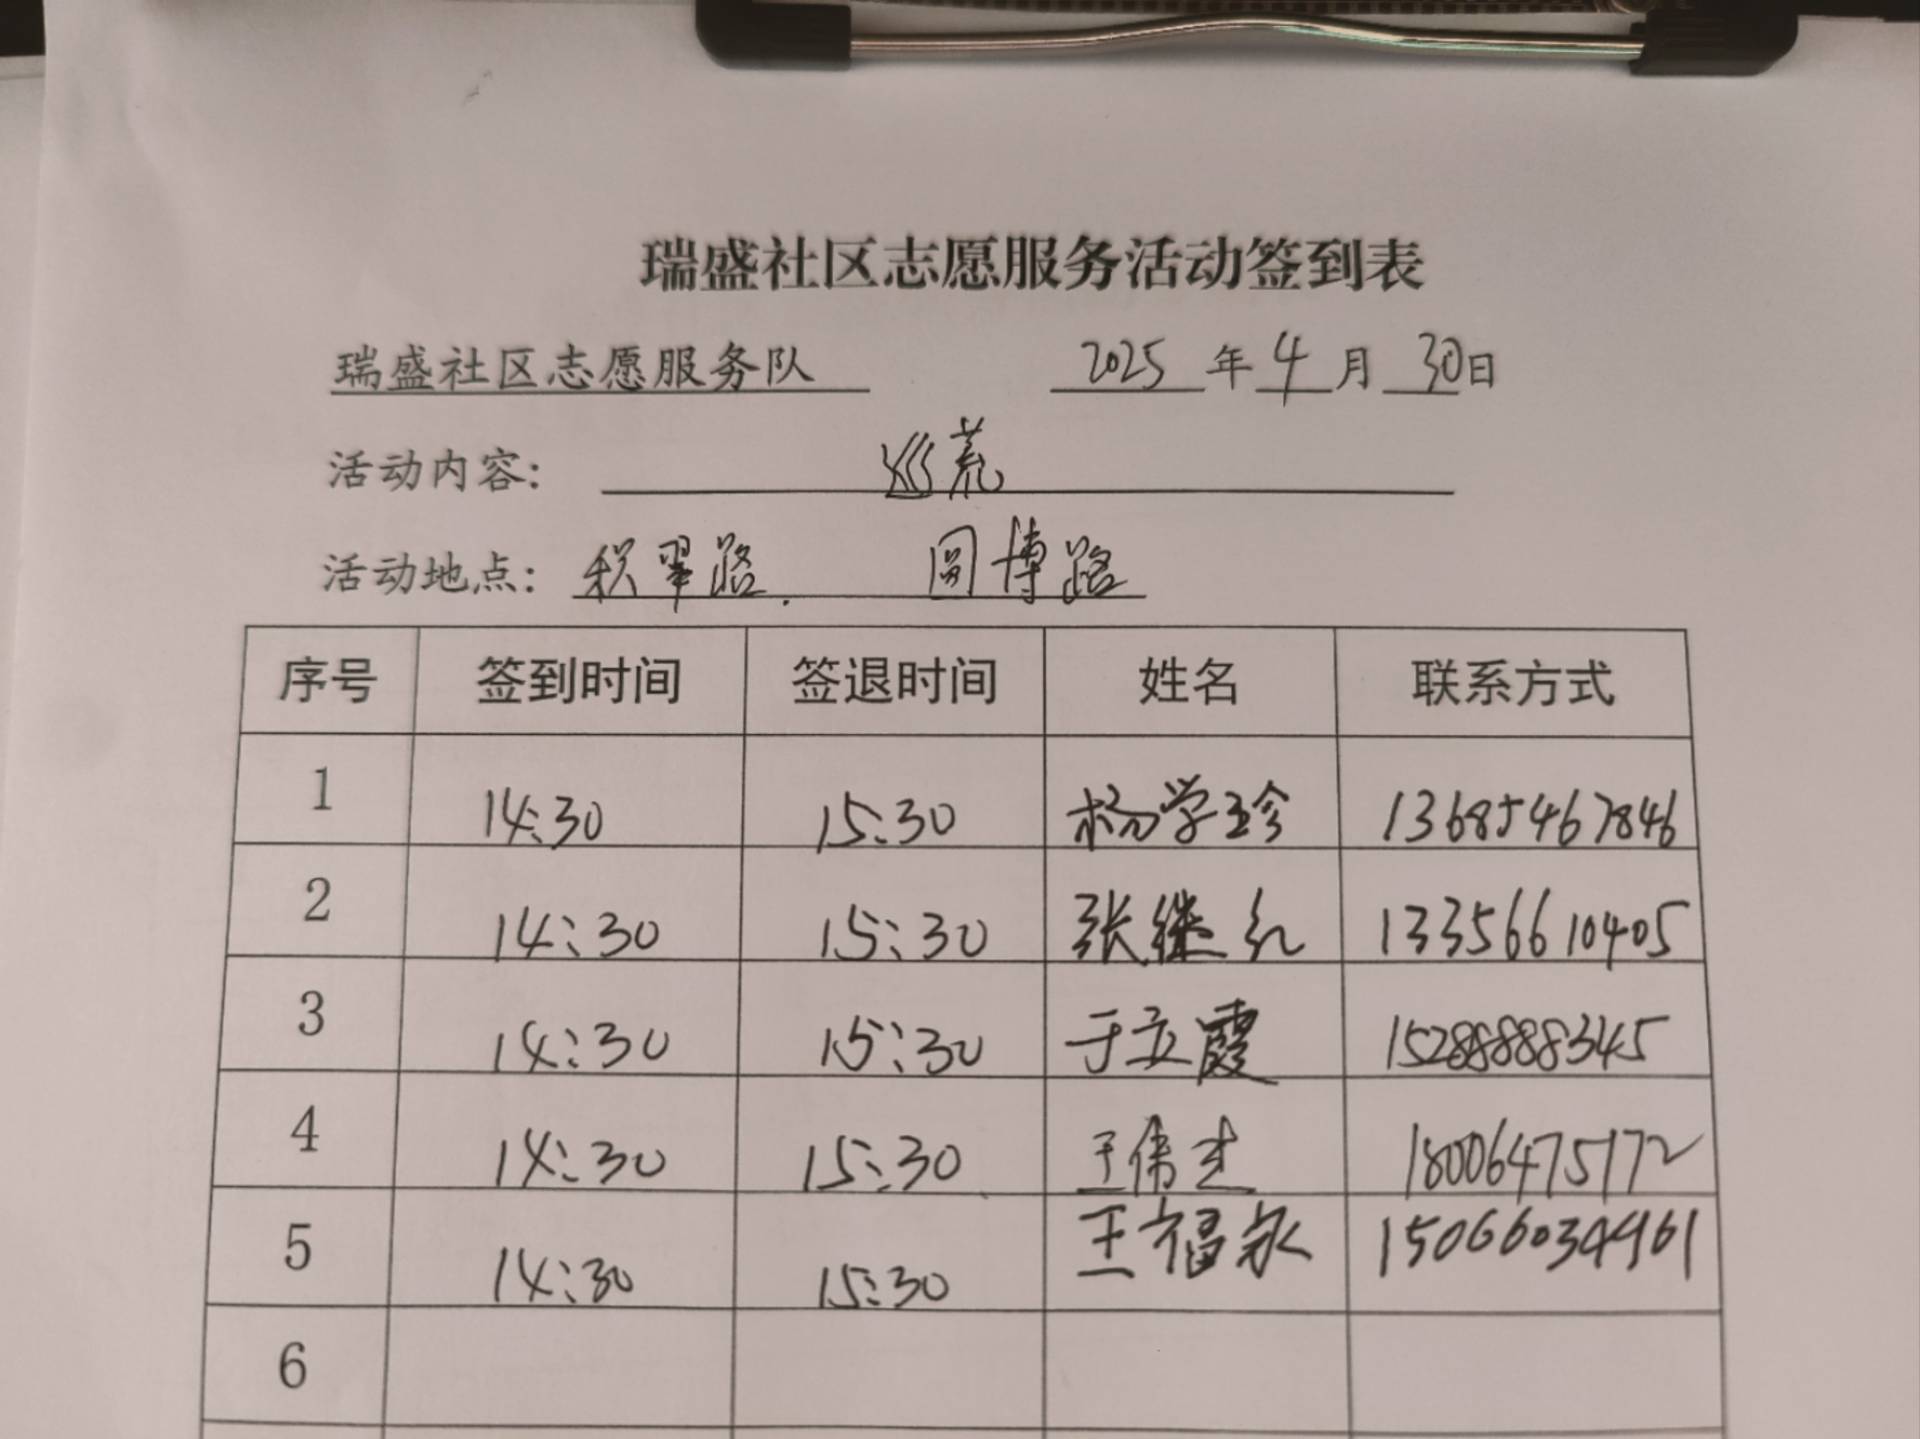 瑞盛社区志愿服务活动签到表
瑞盛社区志愿服务队 2025 年 4 月 30日
活动内容： 巡荒
活动地点： 积翠路. 园博路
序号 签到时间 签退时间 姓名 联系方式
1 14:30 15:30 杨学珍 13685467846
2 14:30 15:30 张继红 13356610405
3 14:30 15:30 于立霞 15288888345
4 14:30 15:30 王伟杰 18006475172
5 14:30 15:30 王福永 15066034961
6